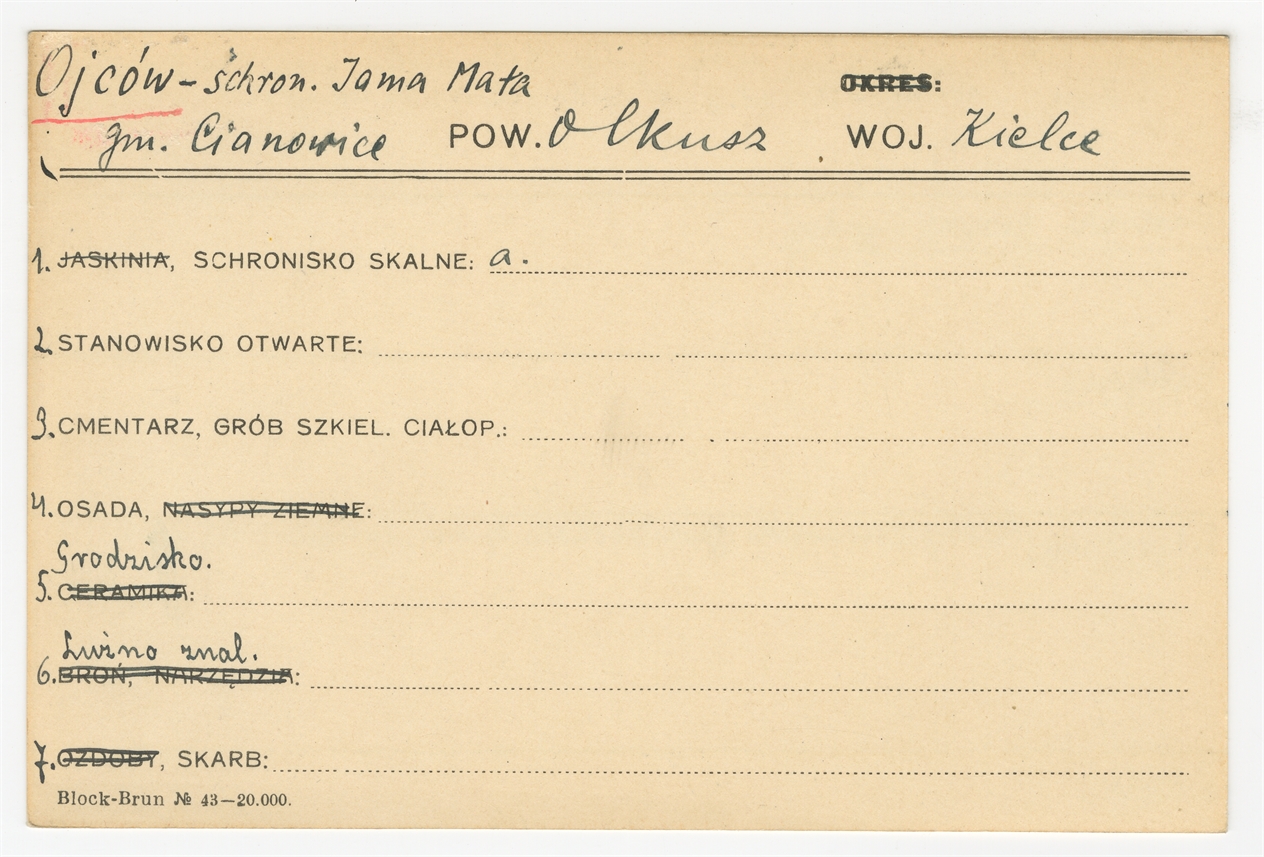 Ojców - schron. Jama Mała OKRES:
gm. Cianowice POW. Olkusz WOJ. Kielce
1. JASKINIA, SCHRONISKO SKALNE: a.
2. STANOWISKO OTWARTE:
3. CMENTARZ, GRÓB SZKIEL. CIAŁOP.:
4. OSADA, NASYPY ZIEMNE:
Grodzisko.
5. CERAMIKA:
Luźno znal.
6. BROŃ, NARZĘDZIA:
7. OZDOBY, SKARB:
Block-Brun № 43—20.000.